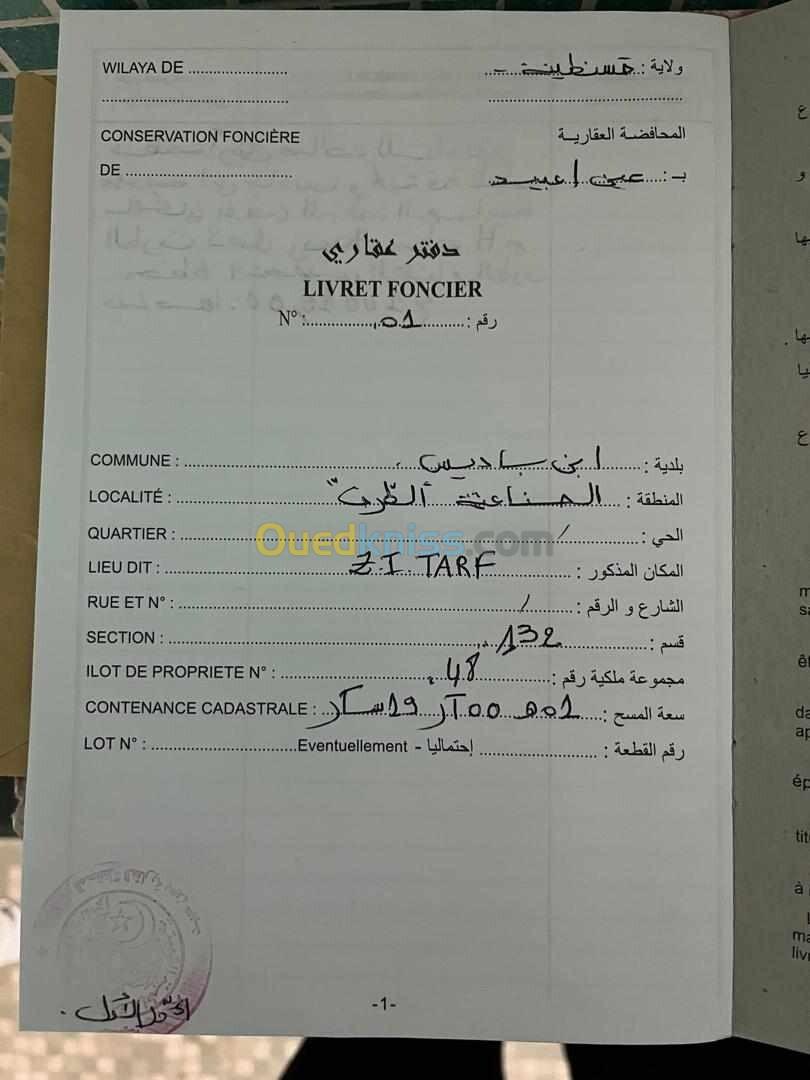 WILAYA DE ........................ ولاية : قسنطينة -
CONSERVATION FONCIÈRE المحافضة العقارية
DE ........................ بـ : عين اعبيد
دفتر عقاري
LIVRET FONCIER
N° : ........ 01 ........ رقم :
COMMUNE : ........ ابن باديس ........ بلدية :
LOCALITÉ : ........ الصناعية "الطرف" ........ المنطقة :
QUARTIER : ........ / ........ الحي :
LIEU DIT : ........ Z.I TARF ........ المكان المذكور :
RUE ET N° : ........ / ........ الشارع و الرقم :
SECTION : ........ 132 ........ قسم :
ILOT DE PROPRIETE N° : ........ 48 ........ مجموعة ملكية رقم :
CONTENANCE CADASTRALE : ... 01هـ 00آر 19سآر ... سعة المسح :
LOT N° : ........ Eventuellement - إحتماليا ........ رقم القطعة :
Ouedkniss.com
-1-